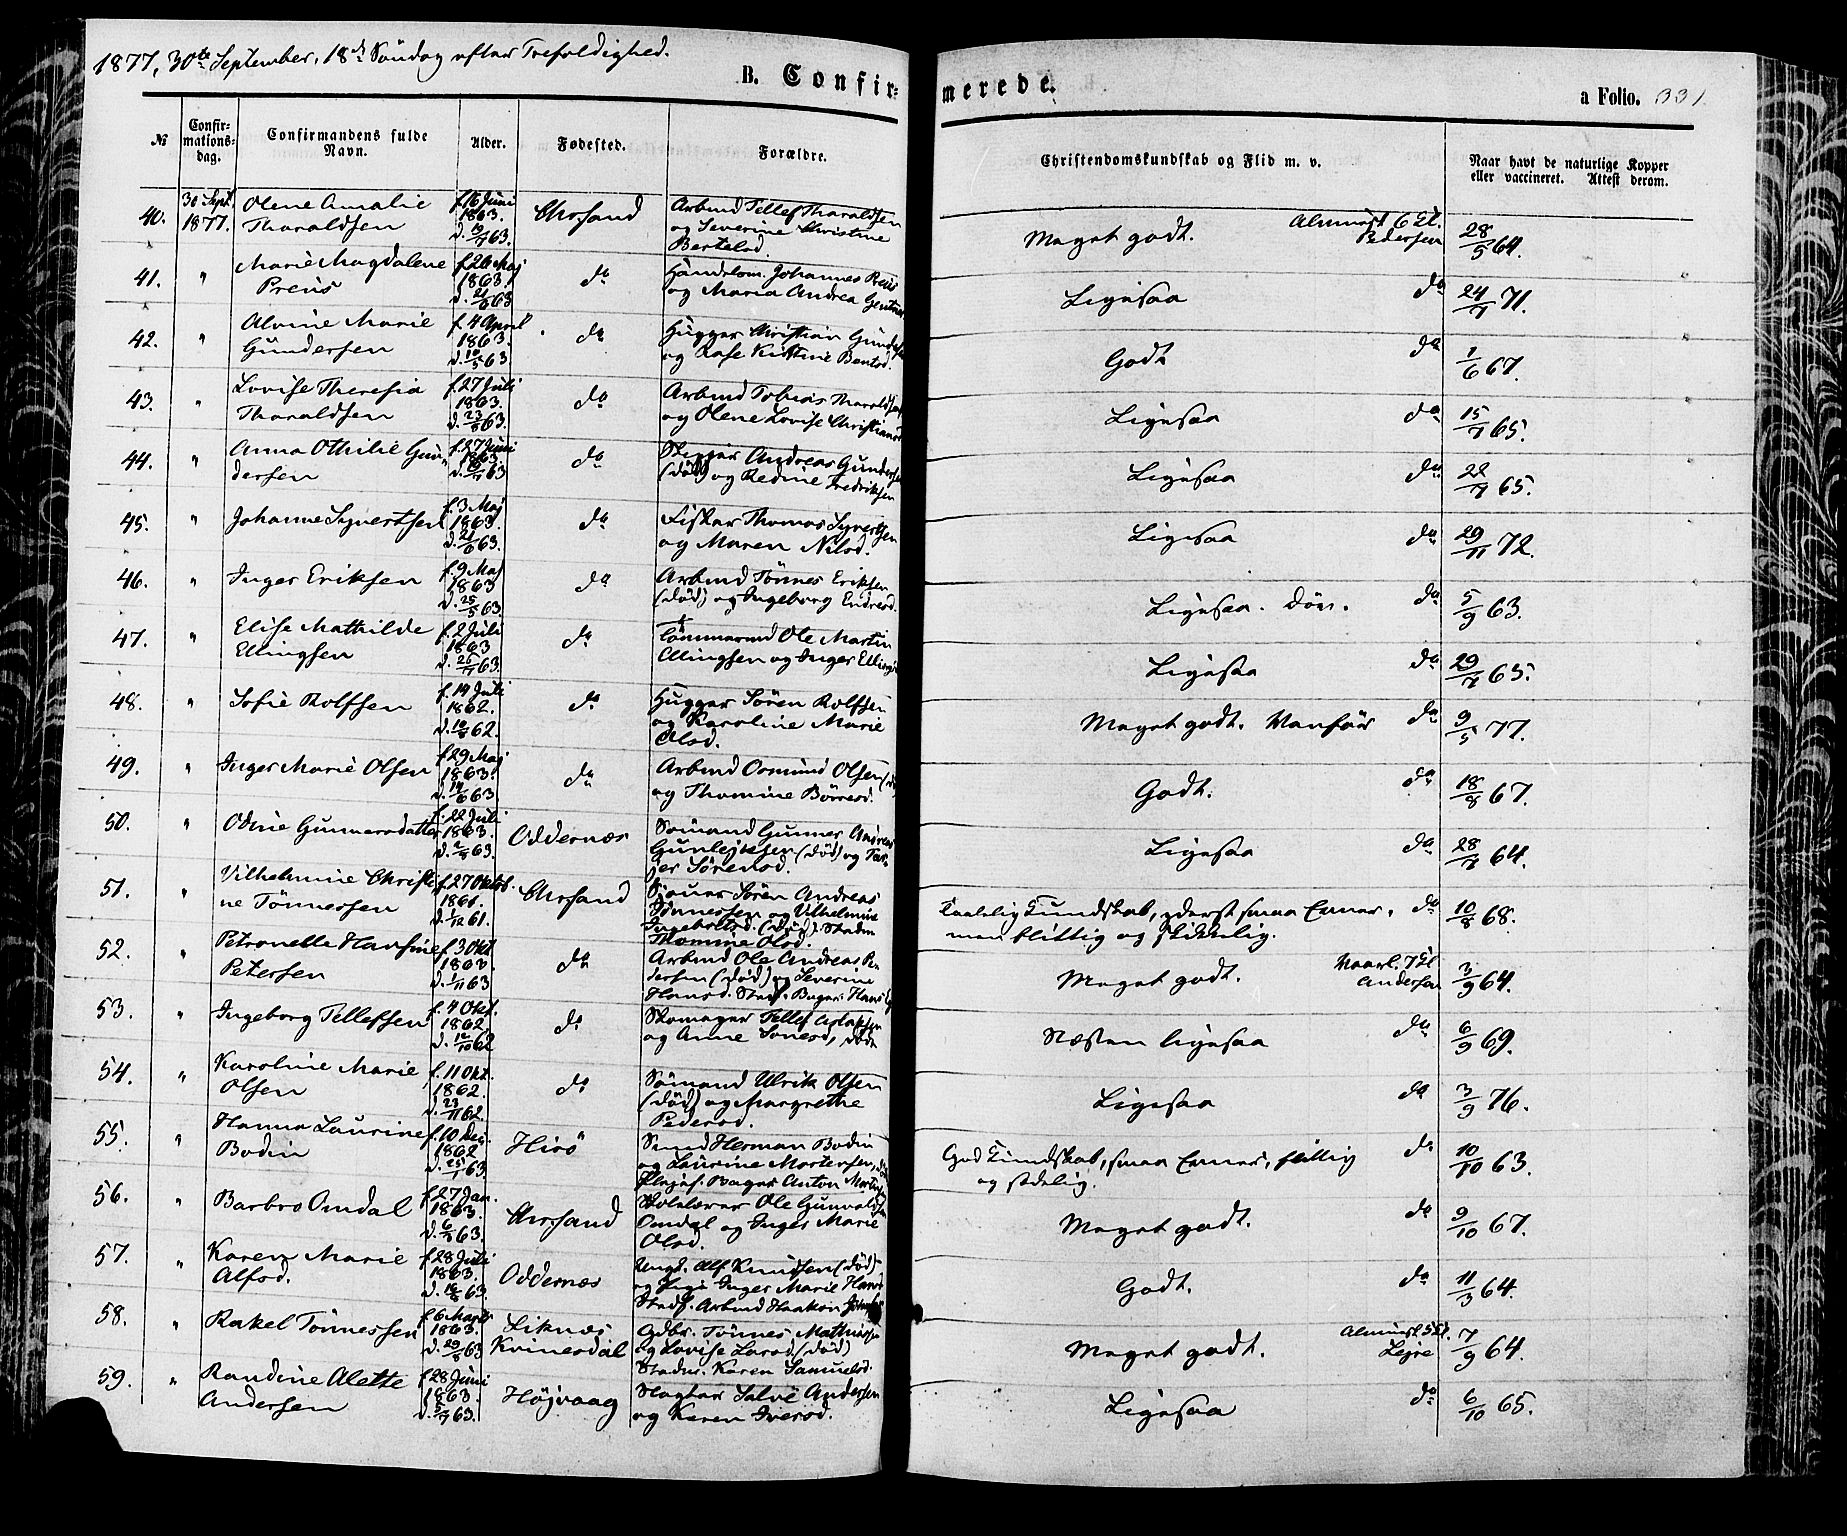 1877, 30te September, 18de Søndag efter Trefoldighed.
B. Confirmerede.
a Folio. 331
№
Confirmationsdag.
Confirmandens fulde Navn.
Alder.
Fødested.
Forældre.
Christendomskundskab og Flid m. v.
Naar havt de naturlige Kopper eller vaccineret. Attest derom.
40. 30 Sept. Olene Amalie f. 16 Juni Chrsand Arbmd Tellef Tharaldsen Meget godt. Almueskl. 6 Kl. 28/5 64.
1877. Tharaldsen 1863. og Severine Christine Pedersen
d. 63. Bertelsd.
41. " Marie Magdalene f. 26 Maj do Johannes Preus Ligesaa do 24/7 71.
Preus 1863. og Maria Andrea
d. 21/6 63
42. " Alvine Marie f. 4 April do Hugger Christian Godt do 1/6 67.
Gundersen 1863. og Kirstine Bentsd.
d. 10/5 63
43. " Lovise Theresia f. 27 Juli do Arbmd Tobias Tharaldsen Ligesaa do 15/7 65.
Tharaldsen 1863. og Olene Lovise
d. 23/8 63.
44. " Anna Othilie Gun- f. 27 Juni do Andreas Gundersen Ligesaa do 22/7 65.
dersen 1863 (død) og Redine Fredriksen
d. 63
45. " Johanne Syvertsen f. 3 Maj do Fisker Thomas Syvertsen Ligesaa do 29/11 72.
1863. og Maren Nilsd.
d. 21/6 63.
46. " Inger Eriksen f. 9 Maj do Arbmd Tønnes Eriksen Ligesaa. Døv. do 5/9 63.
1863 (død) og Ingeborg Endresd.
d. 25/5 63.
47. " Elise Mathilde f. 2 Juli do Tømmermd Ole Martin Ligesaa do 29/7 65.
Ellingsen 1863 Ellingsen og Inger
d. 63.
48. " Sofie Rolfsen f. 14 Juli do Hugger Søren Rolfsen Meget godt. Vanfør do 9/5 77.
1862. og Karoline Marie
d. 10/8 62. Olsd.
49. " Inger Marie Olsen f. 29 Maj do Arbmd Osmund Olsen Godt. do 18/8 67.
1863. og Thomine Børresd.
d. 14/6 63
50. " Odine Gunnersdatter f. 22 Juli Oddernæs Sømand Gunner Andreas Ligesaa do 28/7 64.
1863. Gunleiksen (død) og Tar-
63. jer Sørensd.
51. " Vilhelmine Christi- f. 27 Oktob. Chrsand Søren Andreas Taalelig Kundskab, yderst smaa Evner, do 10/8 68.
ne Tønnessen 1861. Tønnessen og Vilhelmine men flittig og skikkelig.
d. 1/12 61. (død). Stedm.
Thomine Olsd.
52. " Petronelle Hansine f. 3 Okt do Arbmd Ole Andreas Pe- Meget godt. 7 Kl. 3/9 64.
Petersen 1863 dersen (død) og Severine Andersen
d. 1/11 63 Hansd.
53. " Ingeborg Tellefsen f. 4 Okt. do Skomager Tellef Aslaksen Næsten ligesaa do 6/9 69.
1862 og Anne døde
d. 12/10 62
54. " Karoline Marie f. 11 Okt. do Sømand Ulrik Olsen Ligesaa do 3/9 76.
Olsen 1862. (død) og Margrethe
d. 23/11 62. Pedersd.
55. " Hanna Laurine f. 10 Des. Hisø Smed Herman Bodin God Kundskab, smaa Evner, flittig do 10/10 63.
Bodin 1862 og Laurine Mortensen, og sædelig.
d. 25/1 63 Plejef. Bager Anton
56. " Barbro Omdal f. 27 Jan. Chrsand Skolelærer Ole Meget godt. do 9/10 67.
1863. Omdal og Inger Marie
63. Olsd.
57. " Karen Marie f. 28 Juli Oddernæs Ungk. Alf Knudsen (død) Godt. do 11/3 64.
Alfsd. 1863. og Inger Marie Hansd.
d. 16/8 63. Stedf. Arbmd Haakon
58. " Rakel Tønnessen f. 6 Marts Liknæs Gdbr. Tønnes Mathiassen Meget godt. Almueskl. 5 Kl. 7/9 64.
1863. Kvinesdal og Lovise Larsd. (død) Lejre
d. 63 Stedm. Karen Samuelsd.
59. " Randine Alette f. 28 Juni Højvaag Slagter Salve Andersen Ligesaa do 6/10 65.
Andersen 1863. og Karen Iversd.
d. 63.